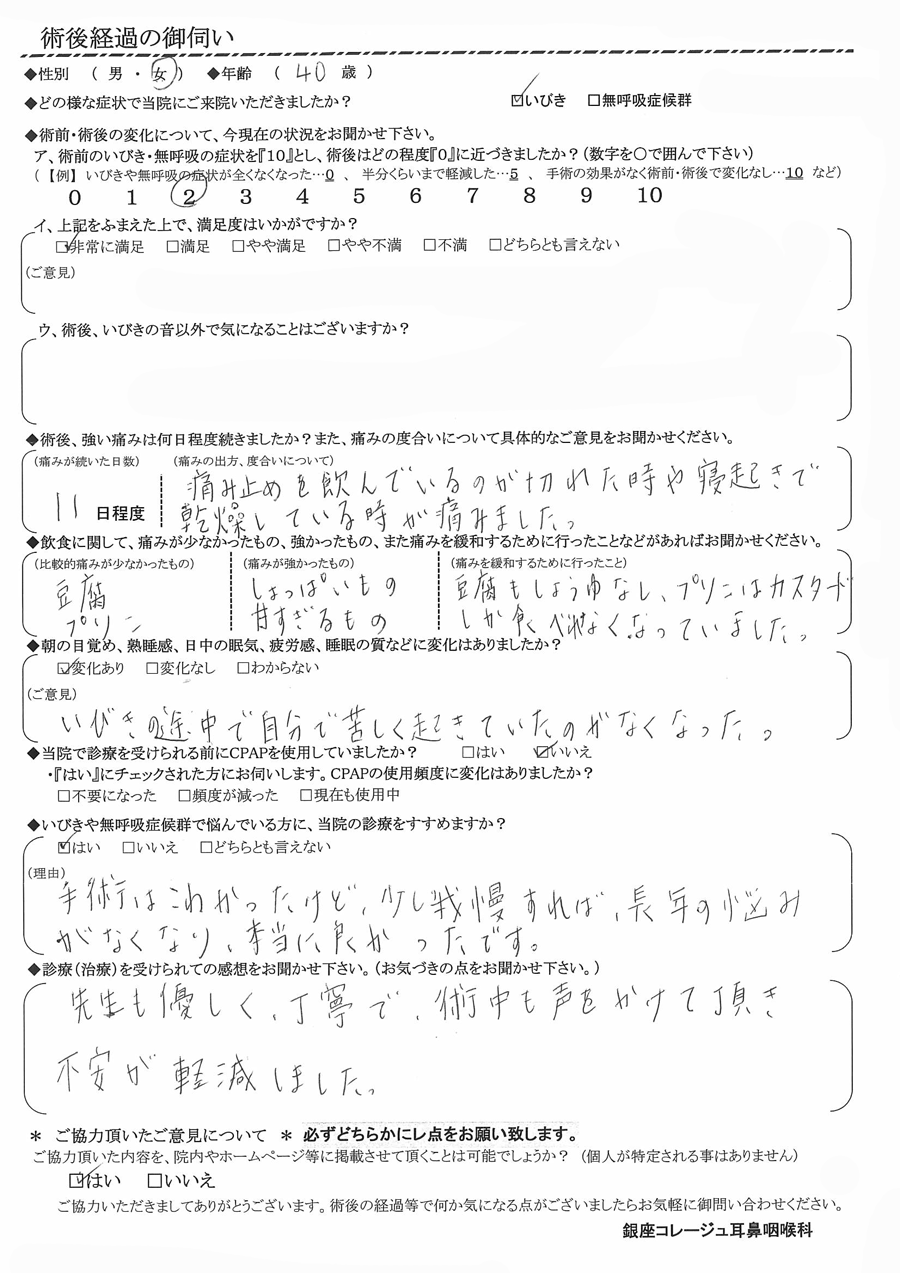 術後経過の御伺い
◆性別 ( 男 ・ 女 ) ◆年齢 ( 40 歳 )
◆どの様な症状で当院にご来院いただきましたか? ☑いびき □無呼吸症候群
◆術前・術後の変化について、今現在の状況をお聞かせ下さい。
ア、術前のいびき・無呼吸の症状を『10』とし、術後はどの程度『0』に近づきましたか?(数字を○で囲んで下さい)
(【例】いびきや無呼吸の症状が全くなくなった…0 、 半分くらいまで軽減した…5 、 手術の効果がなく術前・術後で変化なし…10 など)
0 1 2 3 4 5 6 7 8 9 10
イ、上記をふまえた上で、満足度はいかがですか?
☑非常に満足 □満足 □やや満足 □やや不満 □不満 □どちらとも言えない
(ご意見)
ウ、術後、いびきの音以外で気になることはございますか?
◆術後、強い痛みは何日程度続きましたか?また、痛みの度合いについて具体的なご意見をお聞かせください。
(痛みが続いた日数) (痛みの出方、度合いについて)
痛み止めを飲んでいるのが切れた時や寝起きで
11 日程度 乾燥している時が痛みました。
◆飲食に関して、痛みが少なかったもの、強かったもの、また痛みを緩和するために行ったことなどがあればお聞かせください。
(比較的痛みが少なかったもの) (痛みが強かったもの) (痛みを緩和するために行ったこと)
豆腐 しょっぱいもの 豆腐もしょうゆなし、プリンはカスタード
プリン 甘すぎるもの しか食べれなくなっていました。
◆朝の目覚め、熟睡感、日中の眠気、疲労感、睡眠の質などに変化はありましたか?
☑変化あり □変化なし □わからない
(ご意見)
いびきの途中で自分で苦しく起きていたのがなくなった。
◆当院で診療を受けられる前にCPAPを使用していましたか? □はい ☑いいえ
・『はい』にチェックされた方にお伺いします。CPAPの使用頻度に変化はありましたか?
□不要になった □頻度が減った □現在も使用中
◆いびきや無呼吸症候群で悩んでいる方に、当院の診療をすすめますか?
☑はい □いいえ □どちらとも言えない
(理由)
手術はこわかったけど、少し我慢すれば、長年の悩み
がなくなり、本当に良かったです。
◆診療(治療)を受けられての感想をお聞かせ下さい。(お気づきの点をお聞かせ下さい。)
先生も優しく、丁寧で、術中も声をかけて頂き
不安が軽減しました。
＊ ご協力頂いたご意見について ＊ 必ずどちらかにレ点をお願い致します。
ご協力頂いた内容を、院内やホームページ等に掲載させて頂くことは可能でしょうか? (個人が特定される事はありません)
☑はい □いいえ
ご協力いただきましてありがとうございます。術後の経過等で何か気になる点がございましたらお気軽に御問い合わせください。
銀座コレージュ耳鼻咽喉科